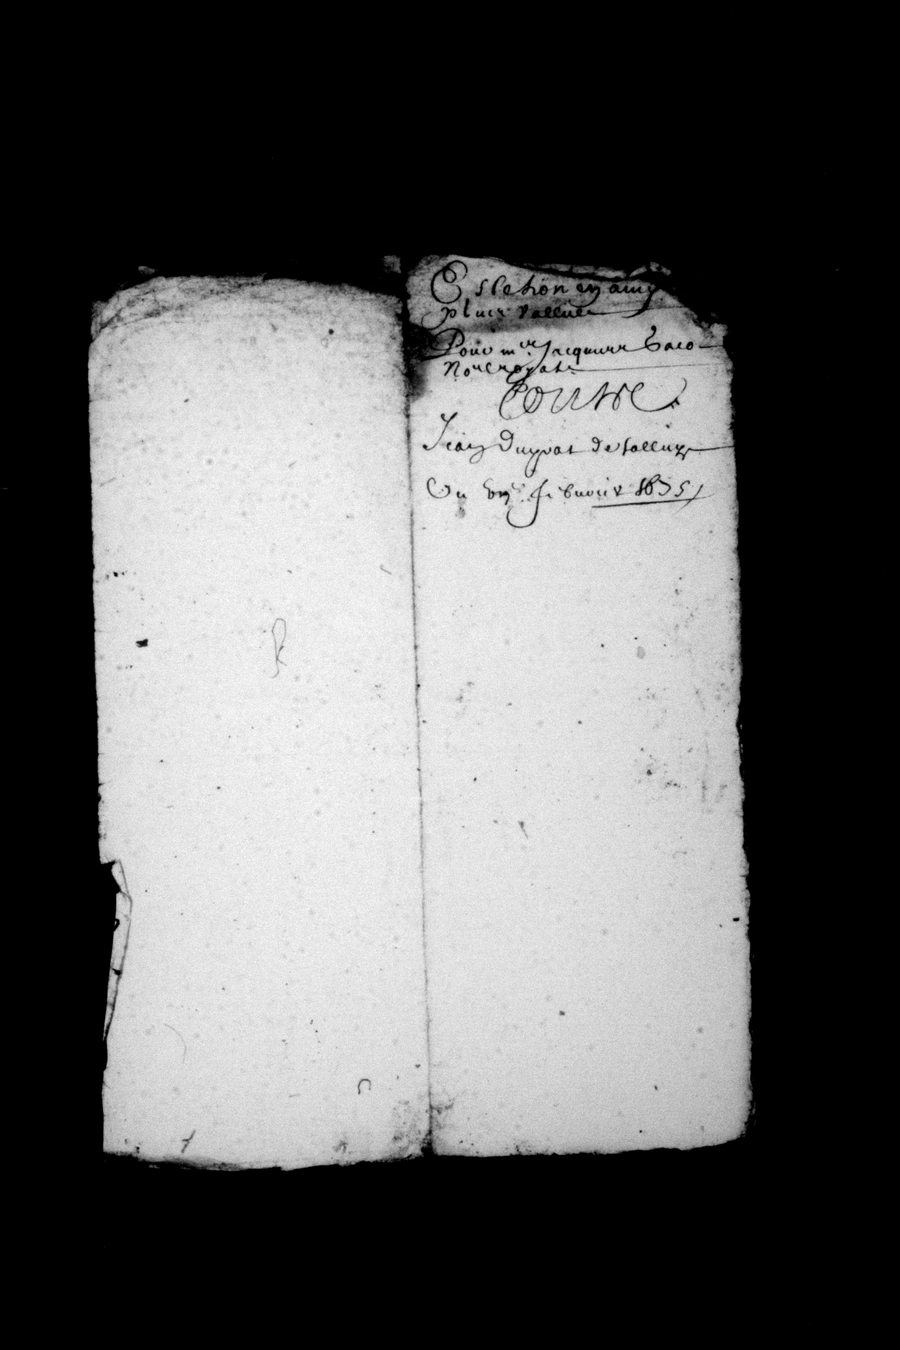 Eslection en amy
plus vallue
Pour m.re Jacques Baco
No.re royal
Contre
Jean Duprat de salluz
Du vi.e febvrier 1635